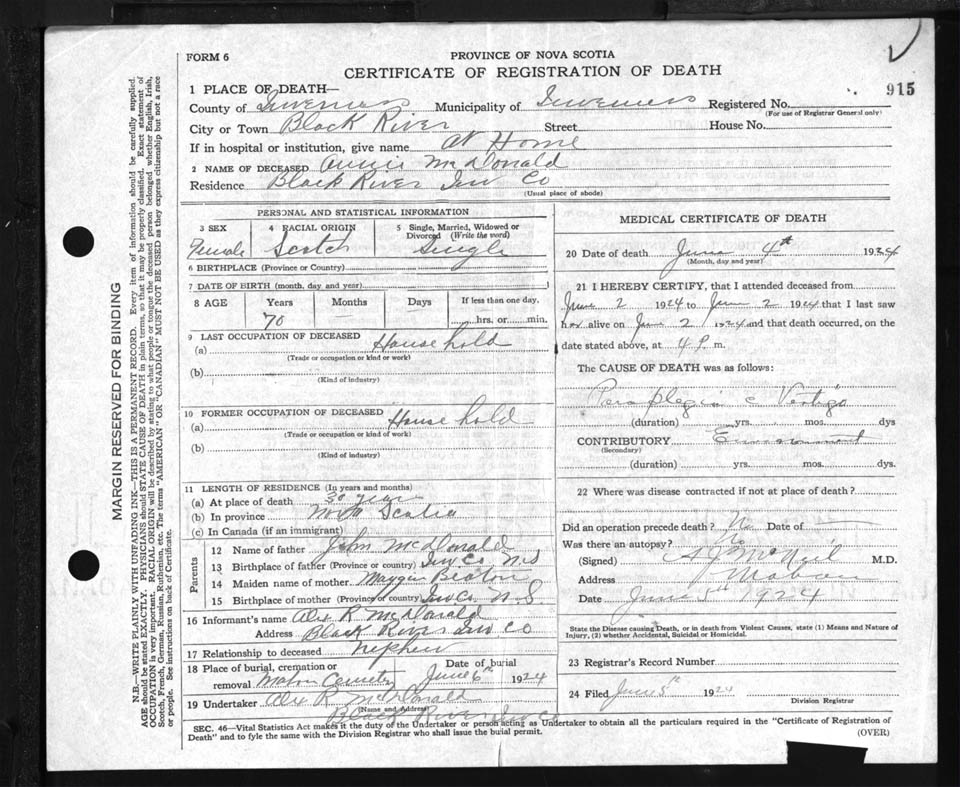 FORM 6
PROVINCE OF NOVA SCOTIA
CERTIFICATE OF REGISTRATION OF DEATH
915
1 PLACE OF DEATH—
County of Inverness Municipality of Inverness Registered No.
(For use of Registrar General only)
City or Town Black River Street House No.
If in hospital or institution, give name at Home
2 NAME OF DECEASED Annie McDonald
Residence Black River Inv Co
(Usual place of abode)
PERSONAL AND STATISTICAL INFORMATION
3 SEX 4 RACIAL ORIGIN 5 Single, Married, Widowed or Divorced (Write the word)
Female Scotch Single
6 BIRTHPLACE (Province or Country)
7 DATE OF BIRTH (month, day and year)
8 AGE Years Months Days If less than one day.
70 — hrs. or min.
9 LAST OCCUPATION OF DECEASED
(a) House hold
(Trade or occupation or kind or work)
(b)
(Kind of industry)
10 FORMER OCCUPATION OF DECEASED
(a) House hold
(Trade or occupation or kind of work)
(b)
(Kind of industry)
11 LENGTH OF RESIDENCE (In years and months)
(a) At place of death 30 years
(b) In province Nova Scotia
(c) In Canada (if an immigrant)
Parents
12 Name of father John McDonald
13 Birthplace of father (Province or country) Inv Co. N S
14 Maiden name of mother Beaton
15 Birthplace of mother (Province or country) Inv Co. N. S.
16 Informant's name Alex R McDonald
Address Black River Inv Co
17 Relationship to deceased Nephew
18 Place of burial, cremation or removal Mabou Cemetery Date of burial June 6th 1924
19 Undertaker Alex R McDonald
(Name and Address)
Black River Inv Co
MEDICAL CERTIFICATE OF DEATH
20 Date of death June 4th 1924
(Month, day and year)
21 I HEREBY CERTIFY, that I attended deceased from
June 2 1924 to June 2 1924 that I last saw
her alive on June 2 1924 and that death occurred, on the
date stated above, at 4 P. m.
The CAUSE OF DEATH was as follows:
Paraplegia c Vertigo
(duration) yrs. mos. dys
CONTRIBUTORY
(Secondary)
(duration) yrs. mos. dys.
22 Where was disease contracted if not at place of death?
Did an operation precede death? No Date of
Was there an autopsy? No
(Signed) A J McNeil M.D.
Address Mabou
Date June 5th 1924
State the Disease causing Death, or in death from Violent Causes, state (1) Means and Nature of Injury, (2) whether Accidental, Suicidal or Homicidal.
23 Registrar's Record Number
24 Filed June 5th 1924
Division Registrar
SEC. 46—Vital Statistics Act makes it the duty of the Undertaker or person acting as Undertaker to obtain all the particulars required in the "Certificate of Registration of
Death" and to fyle the same with the Division Registrar who shall issue the burial permit.
(OVER)
MARGIN RESERVED FOR BINDING
N.B.—WRITE PLAINLY WITH UNFADING INK—THIS IS A PERMANENT RECORD. Every item of information should be carefully supplied.
AGE should be stated EXACTLY. PHYSICIANS should STATE CAUSE OF DEATH in plain terms, so that it may be properly classified. Exact statement of
OCCUPATION is very important. RACIAL ORIGIN will be described by stating to what people or tongue the deceased person belonged whether English, Irish,
Scotch, French, German, Russian, Ruthenian, etc. The terms "AMERICAN" OR "CANADIAN" MUST NOT BE USED as they express citizenship but not a race
or people. See instructions on back of Certificate.